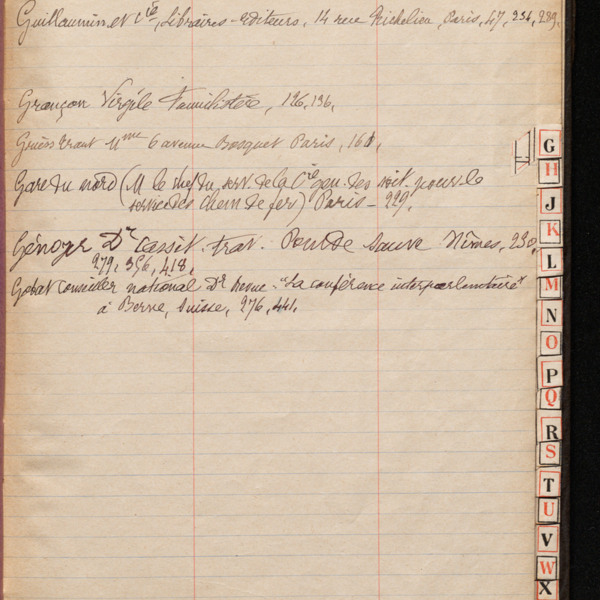 Guillaumin et Cie, Libraires-éditeurs, 14 rue Richelieu, Paris, 47, 234, 289,
Grançon Virgile Familistère, 126, 136,
Mme 6 avenue Bosquet Paris, 161,
Gare du nord (M le chef du serv. de la Cie gén. des voit. pour le
service des chem de fer) Paris - 229.
Dr Cassit. trav. Sauve Nîmes, 230,
279, 356, 418,
Gobat Conseiller national Dr Revue "La conférence interparlementaire"
à Berne, Suisse, 276, 441,
G
H
J
K
L
M
N
O
P
Q
R
S
T
U
V
W
X